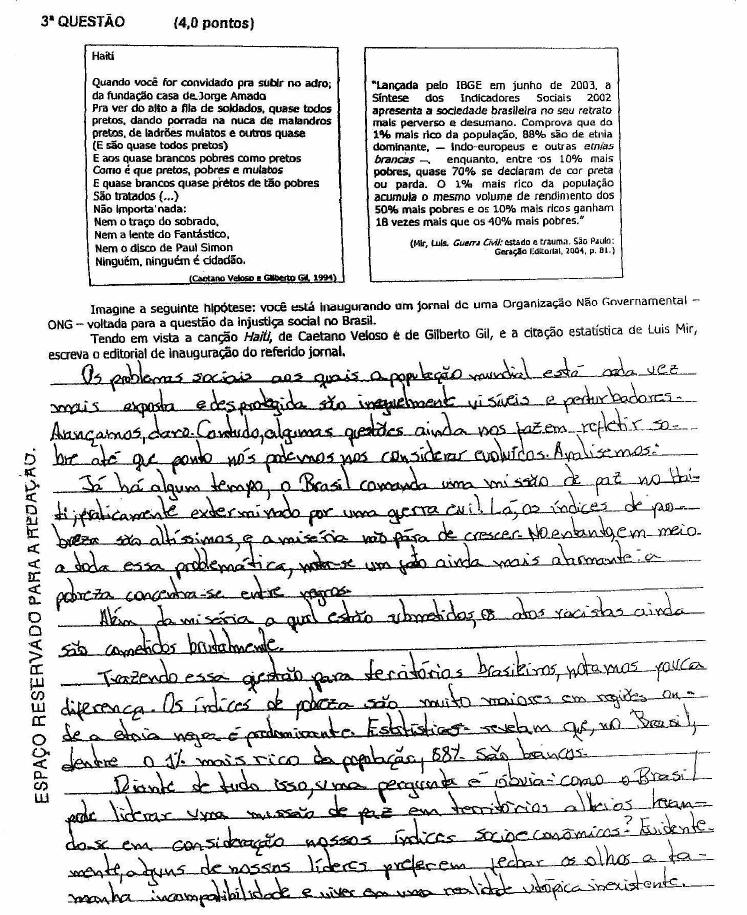 3ª QUESTÃO (4,0 pontos)
Haiti
Quando você for convidado pra subir no adro;
da fundação casa de Jorge Amado
Pra ver do alto a fila de soldados, quase todos
pretos, dando porrada na nuca de malandros
pretos, de ladrões mulatos e outros quase
(E são quase todos pretos)
E aos quase brancos pobres como pretos
Como é que pretos, pobres e mulatos
E quase brancos quase pretos de tão pobres
São tratados (...)
Não importa nada:
Nem o traço do sobrado,
Nem a lente do Fantástico,
Nem o disco de Paul Simon
Ninguém, ninguém é cidadão.
(Caetano Veloso e Gilberto Gil, 1994)
"Lançada pelo IBGE em junho de 2003, a
Síntese dos Indicadores Sociais 2002
apresenta a sociedade brasileira no seu retrato
mais perverso e desumano. Comprova que do
1% mais rico da população, 88% são de etnia
dominante, — indo-europeus e outras etnias
brancas —, enquanto, entre os 10% mais
pobres, quase 70% se declaram de cor preta
ou parda. O 1% mais rico da população
acumula o mesmo volume de rendimento dos
50% mais pobres e os 10% mais ricos ganham
18 vezes mais que os 40% mais pobres."
(Mir, Luis. Guerra Civil: estado e trauma. São Paulo:
Geração Editorial, 2004, p. 81.)
Imagine a seguinte hipótese: você está inaugurando um jornal de uma Organização Não Governamental –
ONG – voltada para a questão da injustiça social no Brasil.
Tendo em vista a canção Haiti, de Caetano Veloso e de Gilberto Gil, e a citação estatística de Luis Mir,
escreva o editorial de inauguração do referido jornal.
ESPAÇO RESERVADO PARA A REDAÇÃO.
Os problemas sociais aos quais a população mundial está cada vez
mais exposta e desprotegida são ineguelmente visíveis e perturbadores.
Avançamos, claro. Contudo, algumas questões ainda nos fazem refletir so-
bre até que ponto nós podemos nos considerar evoluídos. Analisemos:
Já há algum tempo, o Brasil comanda uma missão de paz no Hai-
ti, praticamente exterminado por uma guerra civil. Lá, os índices de po-
breza são altíssimos, e a miséria não pára de crescer. No entanto, em meio
a toda essa problemática, nota-se um fato ainda mais alarmante: a
pobreza concentra-se entre negros.
Além da miséria a qual estão submetidos, os atos racistas ainda
são cometidos brutalmente.
Trazendo essa questão para territórios brasileiros, notamos pouca
diferença. Os índices de pobreza são muito maiores em regiões on-
de a etnia negra é predominante. Estatísticas revelam que, no Brasil,
dentre o 1% mais rico da população, 88% são brancos.
Diante de tudo isso, uma pergunta é óbvia: como o Brasil
pode liderar uma missão de paz em territórios alheios levan-
do-se em consideração nossos índices socioeconômicos? Evidente-
mente, alguns de nossos líderes preferem fechar os olhos a ta-
manha incompatibilidade e viver em uma realidade utópica inexistente.